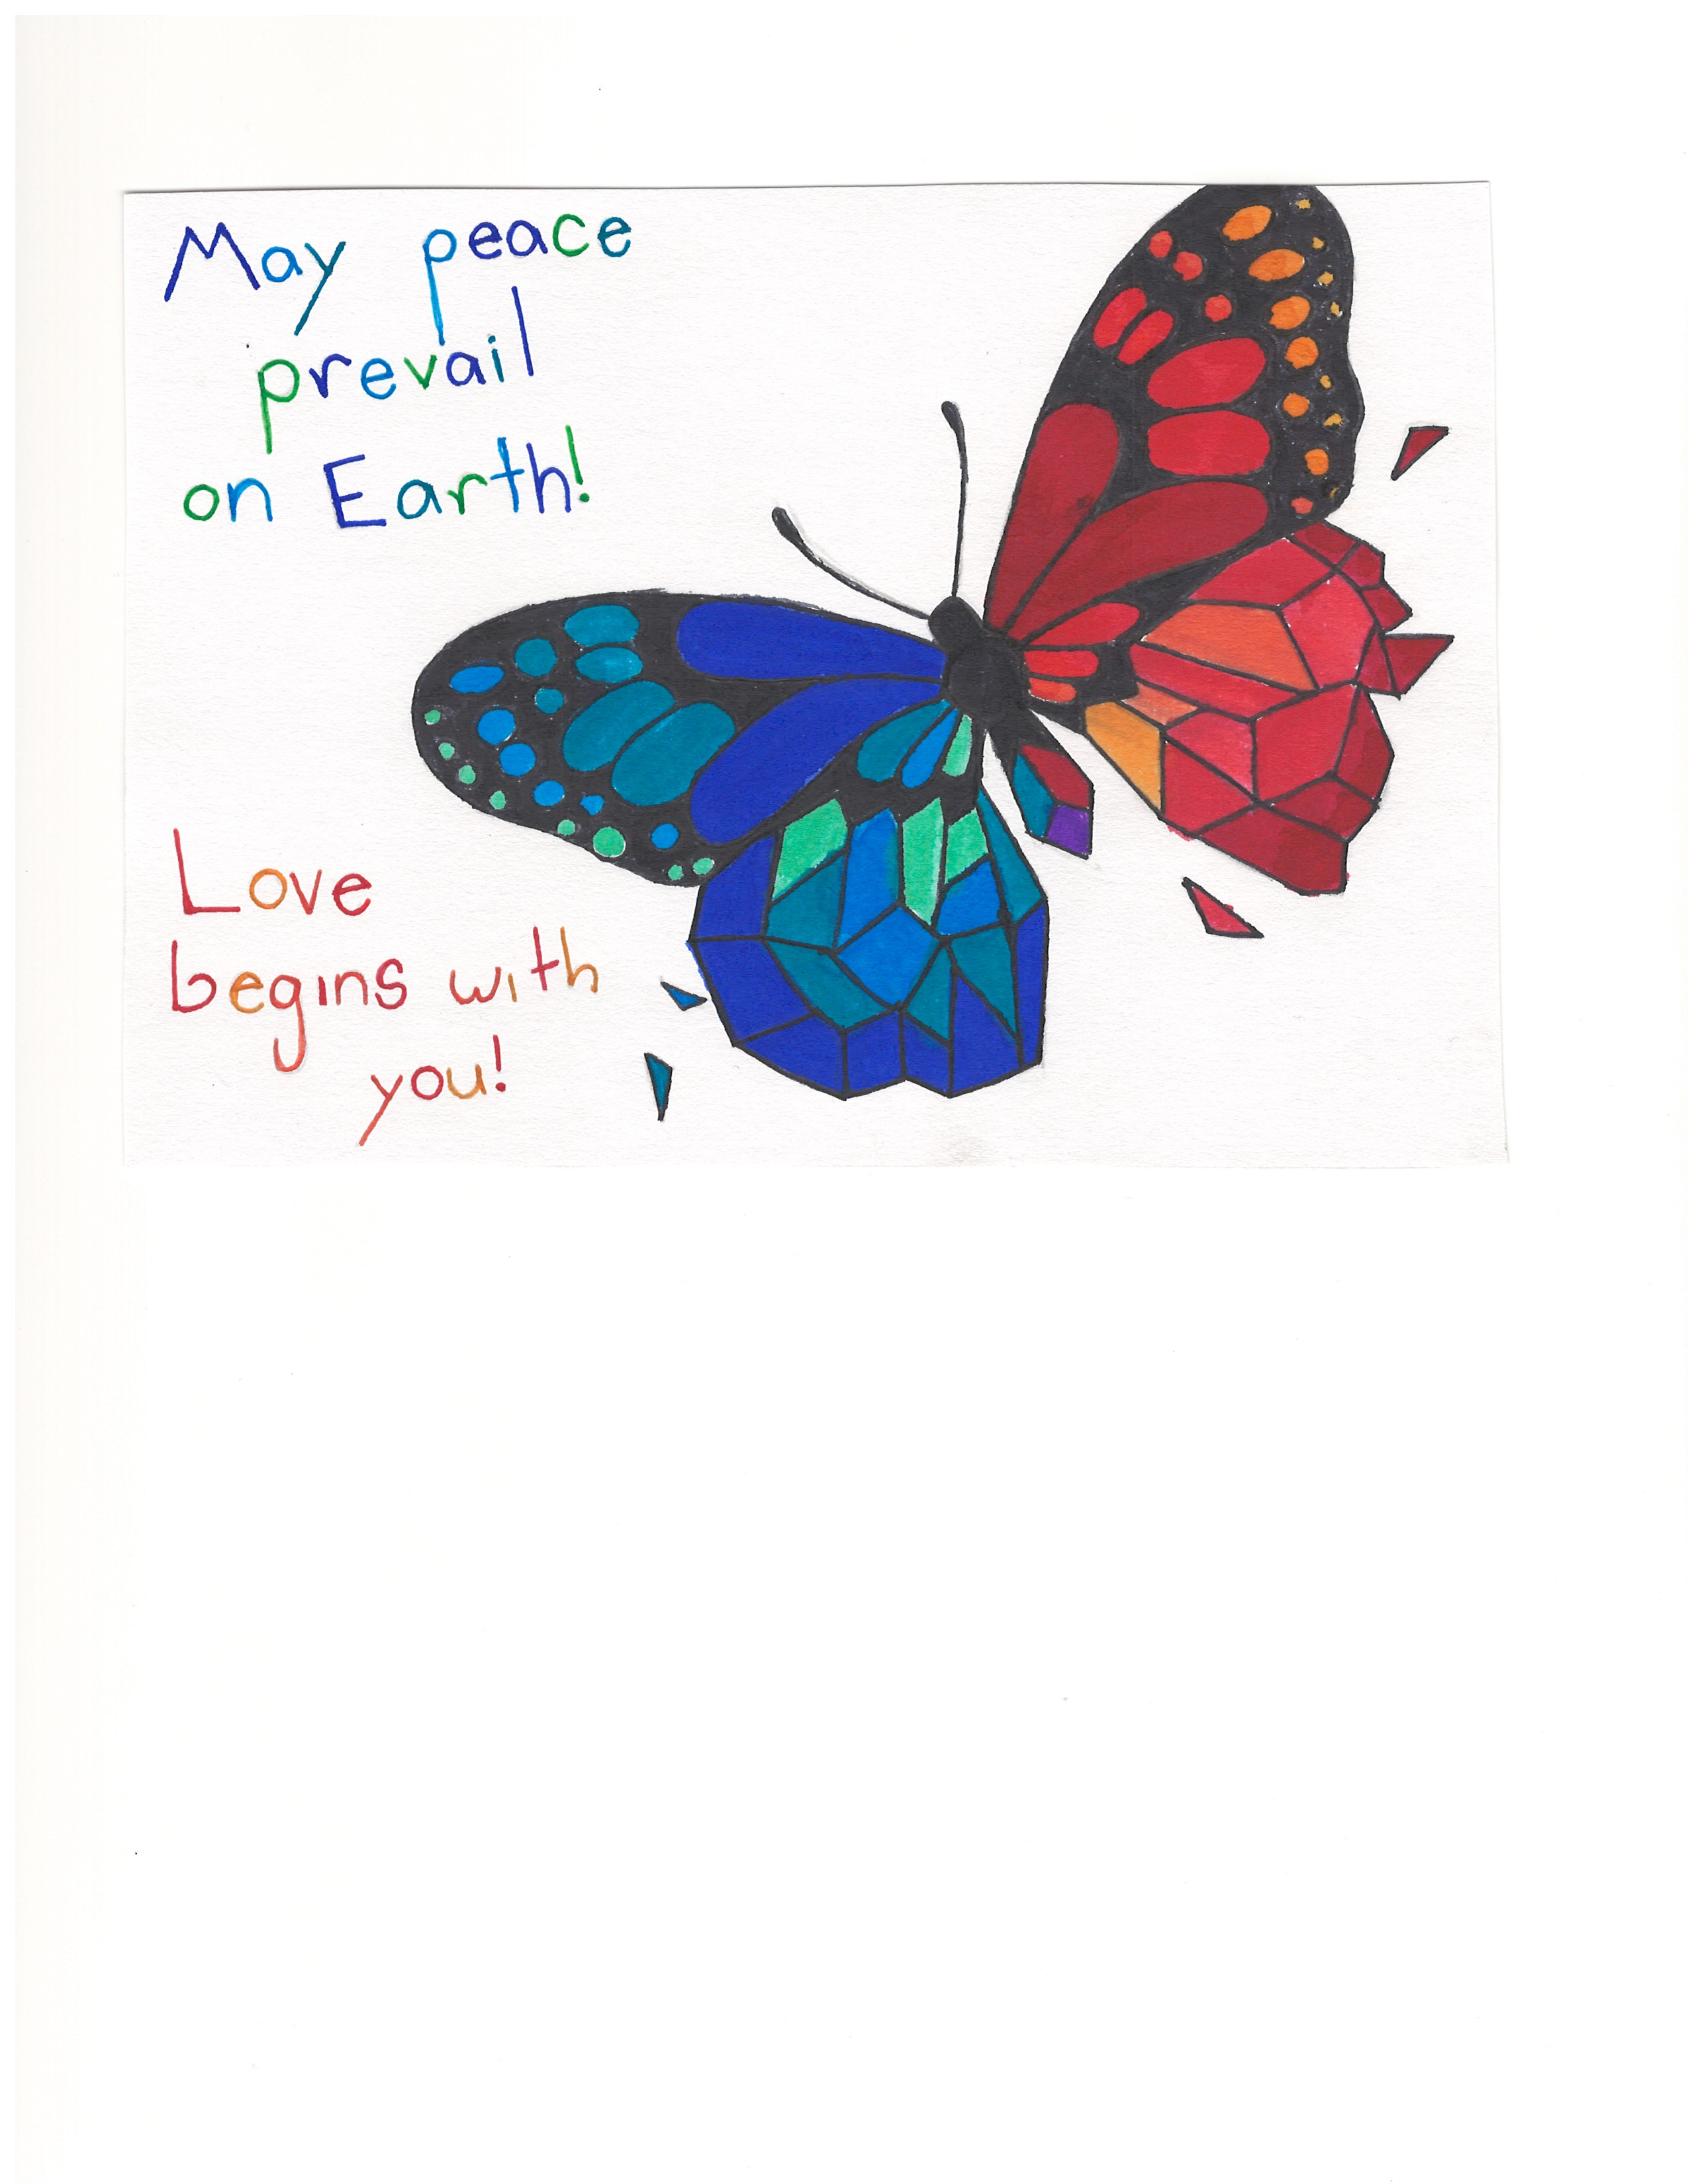 May peace
prevail
on Earth!
Love
begins with
you!